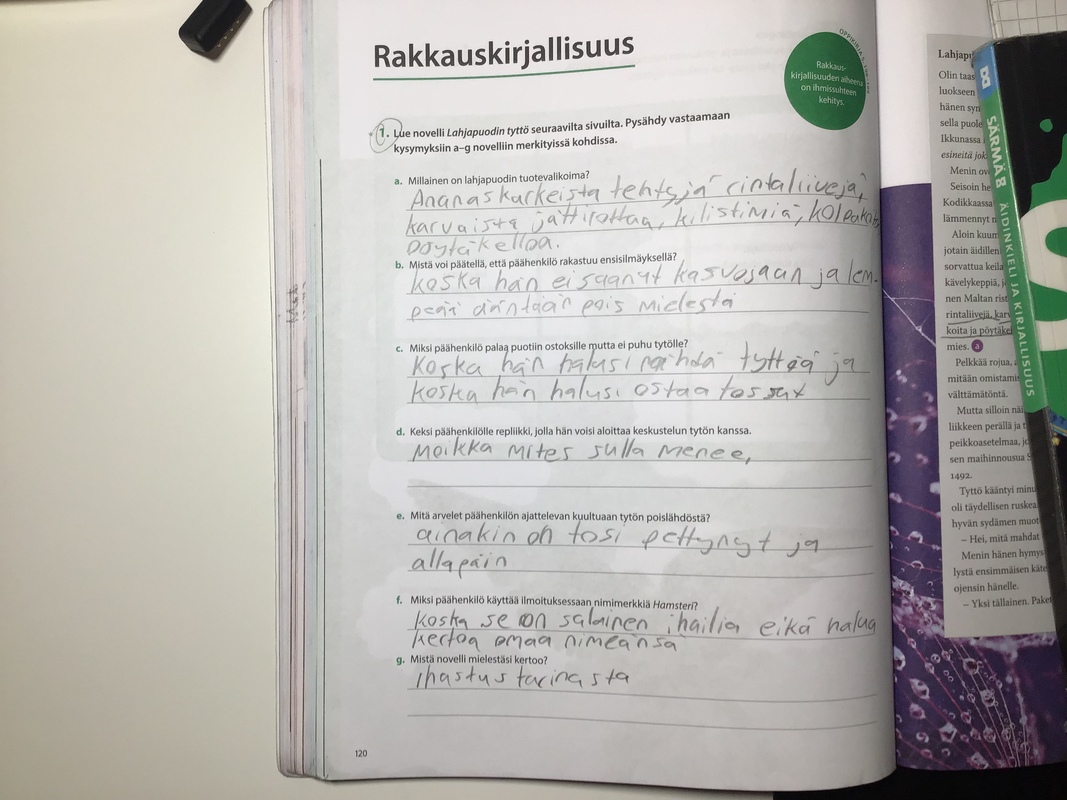 Rakkauskirjallisuus
OPPIKIRJA S.
Rakkaus-
kirjallisuuden aiheena
on ihmissuhteen
kehitys.
1. Lue novelli Lahjapuodin tyttö seuraavilta sivuilta. Pysähdy vastaamaan
kysymyksiin a–g novelliin merkityissä kohdissa.
a. Millainen on lahjapuodin tuotevalikoima?
Ananaskurkeista tehtyjä rintaliivejä,
karvaista jättirottaa, kilistimiä, kolpakoita
pöytäkelloa.
b. Mistä voi päätellä, että päähenkilö rakastuu ensisilmäyksellä?
koska hän ei saanut kasvojaan ja lem-
peää ääntään pois mielestä
c. Miksi päähenkilö palaa puotiin ostoksille mutta ei puhu tytölle?
Koska hän halusi nähdä tyttöä ja
koska hän halusi ostaa tossut
d. Keksi päähenkilölle repliikki, jolla hän voisi aloittaa keskustelun tytön kanssa.
Moikka mites sulla menee,
e. Mitä arvelet päähenkilön ajattelevan kuultuaan tytön poislähdöstä?
ainakin on tosi pettynyt ja
allapäin
f. Miksi päähenkilö käyttää ilmoituksessaan nimimerkkiä Hamsteri?
koska se on salainen ihailia eikä halua
kertoa omaa nimeänsä
g. Mistä novelli mielestäsi kertoo?
ihastus tarinasta
120
Lahjapu
Olin taas
luokseen
hänen syn
sella puole
Ikkunassa
esineitä jok
Menin ov
Seisoin he
Kodikkaassa
lämmennyt n
Aloin kuun
jotain äidillen
sorvattua keila
kävelykeppiä, j
nen Maltan rist
rintaliivejä, kar
koita ja pöytäkel
mies. a
Pelkkää rojua,
mitään omistamis
välttämätöntä.
Mutta silloin näi
liikkeen perällä ja t
peikkoasetelmaa, jo
sen maihinnousua S
1492.
Tyttö kääntyi minu
oli täydellisen ruskea
hyvän sydämen muot
– Hei, mitä mahdat
Menin hänen hymys
lystä ensimmäisen käte
ojensin hänelle.
– Yksi tällainen. Paket
SÄRMÄ 8 ÄIDINKIELI JA KIRJALLISUUS